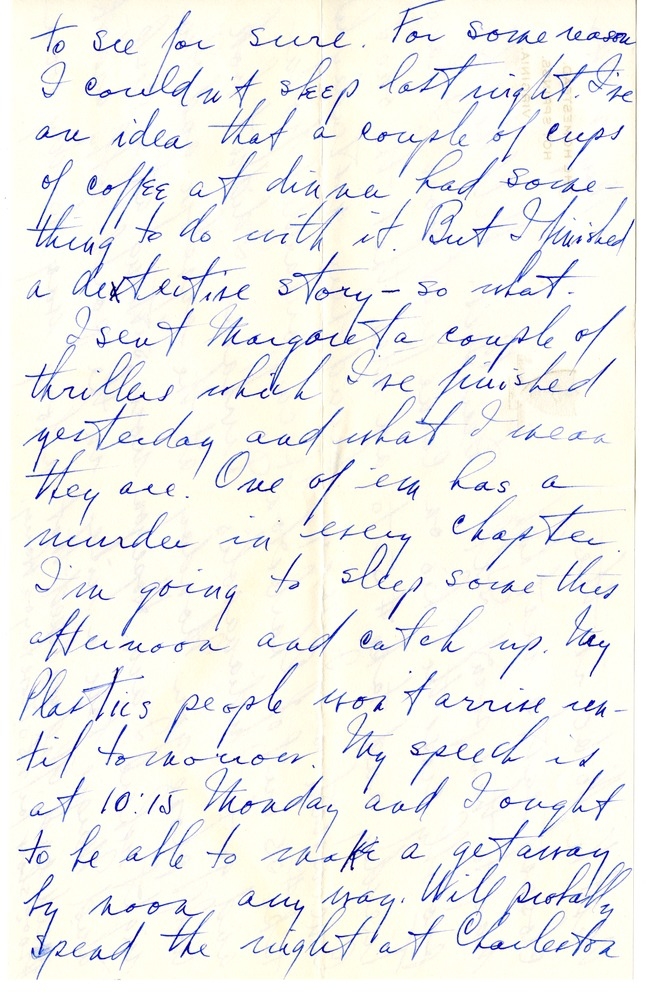 to see for sure. For some reason
I couldn't sleep last night. I've
an idea that a couple of cups
of coffee at dinner had some-
thing to do with it. But I finished
a detective story - so what.
I sent Margaret a couple of
thrillers which I've finished
yesterday and what I mean
they are. One of 'em has a
murder in every chapter.
I'm going to sleep some this
afternoon and catch up. My
Plastics people won't arrive un-
til tomorrow. My speech is
at 10:15 Monday and I ought
to be able to make a getaway
by noon any way. Will probably
spend the night at Charleston